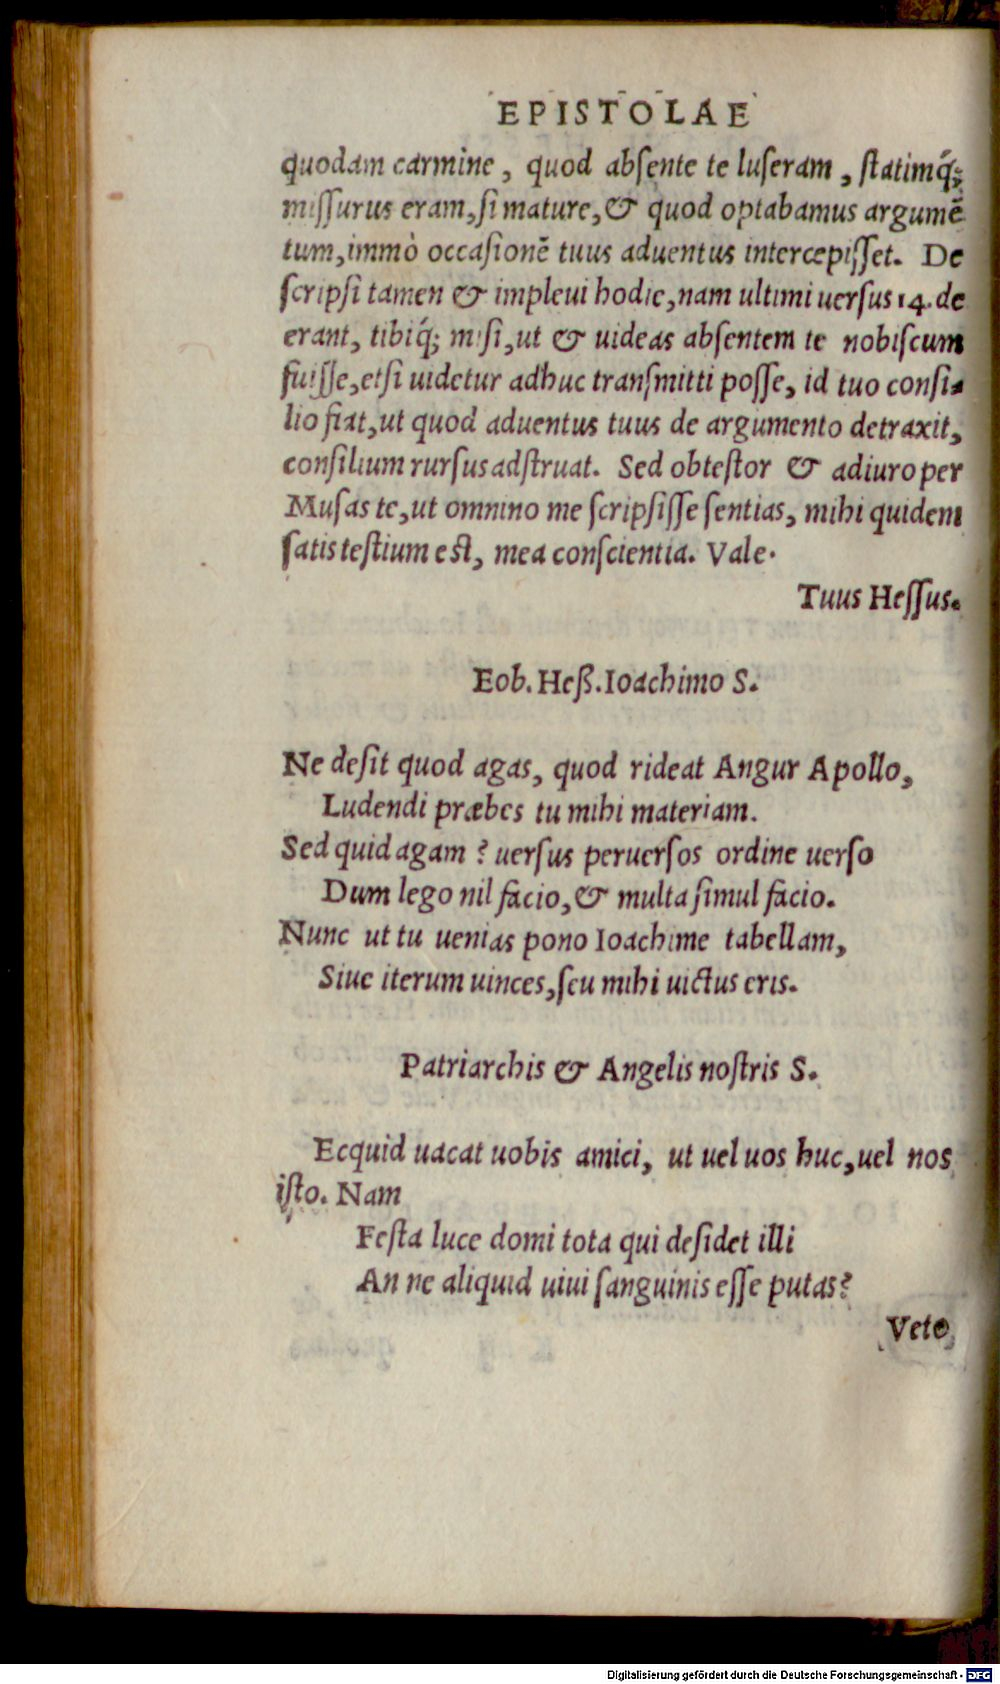 EPISTOLAE
quodam carmine, quod absente te luseram, statimq́;
missurus eram, si mature, & quod optabamus argumē
tum, immò occasionē tuus aduentus intercepisset. De
scripsi tamen & impleui hodie, nam ultimi uersus 14. de
erant, tibiq́; misi, ut & uideas absentem te nobiscum
fuisse, etsi uidetur adhuc transmitti posse, id tuo consi-
lio fiat, ut quod aduentus tuus de argumento detraxit,
consilium rursus adstruat. Sed obtestor & adiuro per
Musas te, ut omnino me scripsisse sentias, mihi quidem
satis testium est, mea conscientia. Vale.
Tuus Hessus.
Eob. Heß. Ioachimo S.
Ne desit quod agas, quod rideat Angur Apollo,
Ludendi præbes tu mihi materiam.
Sed quid agam? uersus peruersos ordine uerso
Dum lego nil facio, & multa simul facio.
Nunc ut tu uenias pono Ioachime tabellam,
Siue iterum uinces, seu mihi uictus eris.
Patriarchis & Angelis nostris S.
Ecquid uacat uobis amici, ut uel uos huc, uel nos
isto. Nam
Festa luce domi tota qui desidet illi
An ne aliquid uiui sanguinis esse putas?
Veto
Digitalisierung gefördert durch die Deutsche Forschungsgemeinschaft - DFG